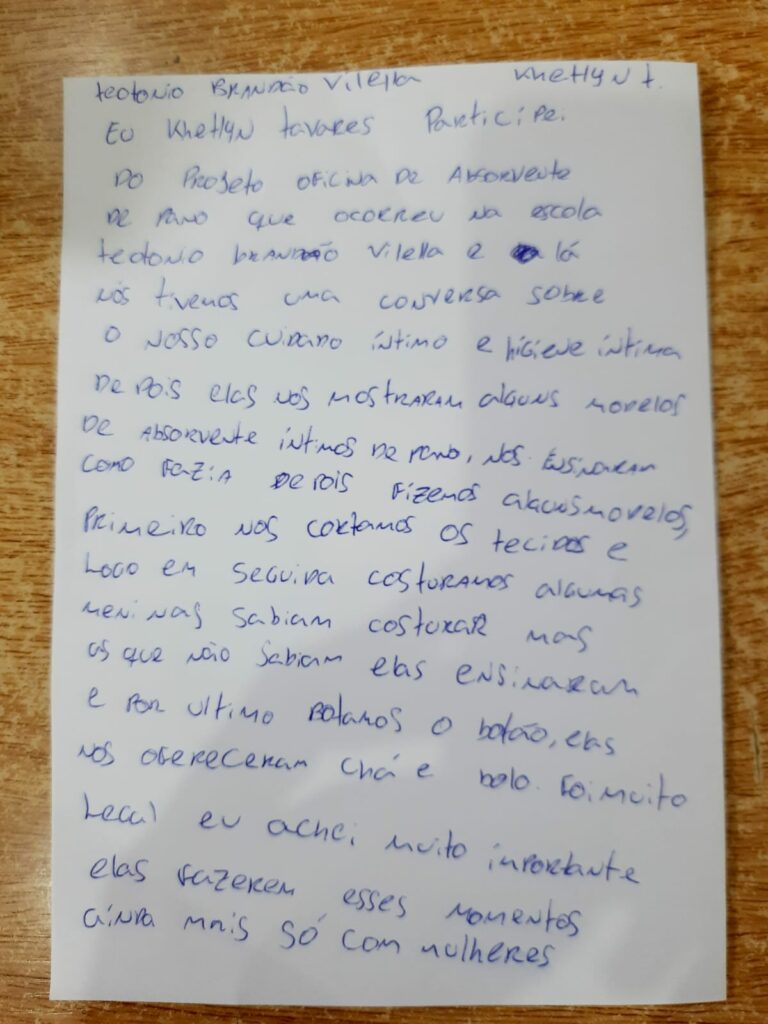 teotonio BRANDÃO Vilella Khetlyn t.
Eu Khetlyn tavares Participei
DO PROJETO OFICINA DE ABSORVENTE
DE PANO que ocorreu na escola
teotonio BRANDÃO Vilella e lá
nós tivemos uma conversa sobre
o nosso cuidado íntimo e higiene íntima
DePois elas nos MOSTRARAM alguns modelos
DE ABSORVENTE íntimos DE PANO, NOS ENSINARAM
COMO FAZIA DEPOIS FIZEMOS alguns modelos,
PRIMEIRO NOS CORTAMOS OS tecidos e
LOGO EM SEGUIDA COSTURAMOS ALGUMAS
MENINAS SABIAM COSTURAR MAS
as que não SABIAM elas ENSINARAM
e POR ULTIMO BOTAMOS O botão, elas
NOS OFERECERAM Chá e bolo. Foi muito
Legal eu achei muito importante
elas FAZEREM esses MOMENTOS
AINDA MAIS SÓ COM Mulheres